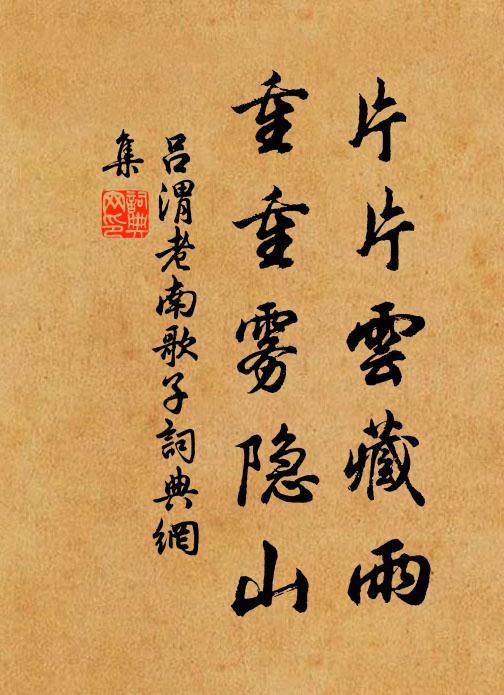 片片雲藏雨
重重雾隐山
呂渭老南歌子詞典網
集
詞典網印